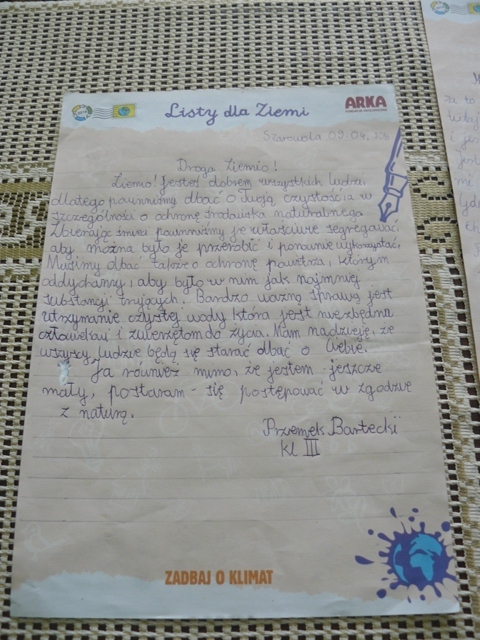 Listy dla Ziemi
ARKA
Szarwola 09.04.
Droga Ziemio!
Ziemio! Jesteś dobrem wszystkich ludzi,
dlatego powinniśmy dbać o Twoją czystością w
szczególności o ochronę środowiska naturalnego
Zbierając śmieci powinniśmy je właściwie segregować,
aby można było je przerobić i ponownie wykorzystać,
Musimy dbać także o ochronę powietrza, którym
oddychamy, aby było w nim jak najmniej
substancji trujących. Bardzo ważną sprawą jest
utrzymanie czystej wody która jest niezbędna
człowiekowi i zwierzętom do życia. Mam nadzieję, że
wszyscy ludzie będą się starać dbać o Ciebie.
Ja również mimo, że jestem jeszcze
mały, postaram się postępować w zgodzie
z naturą.
Przemek Bartecki
kl III
ZADBAJ O KLIMAT